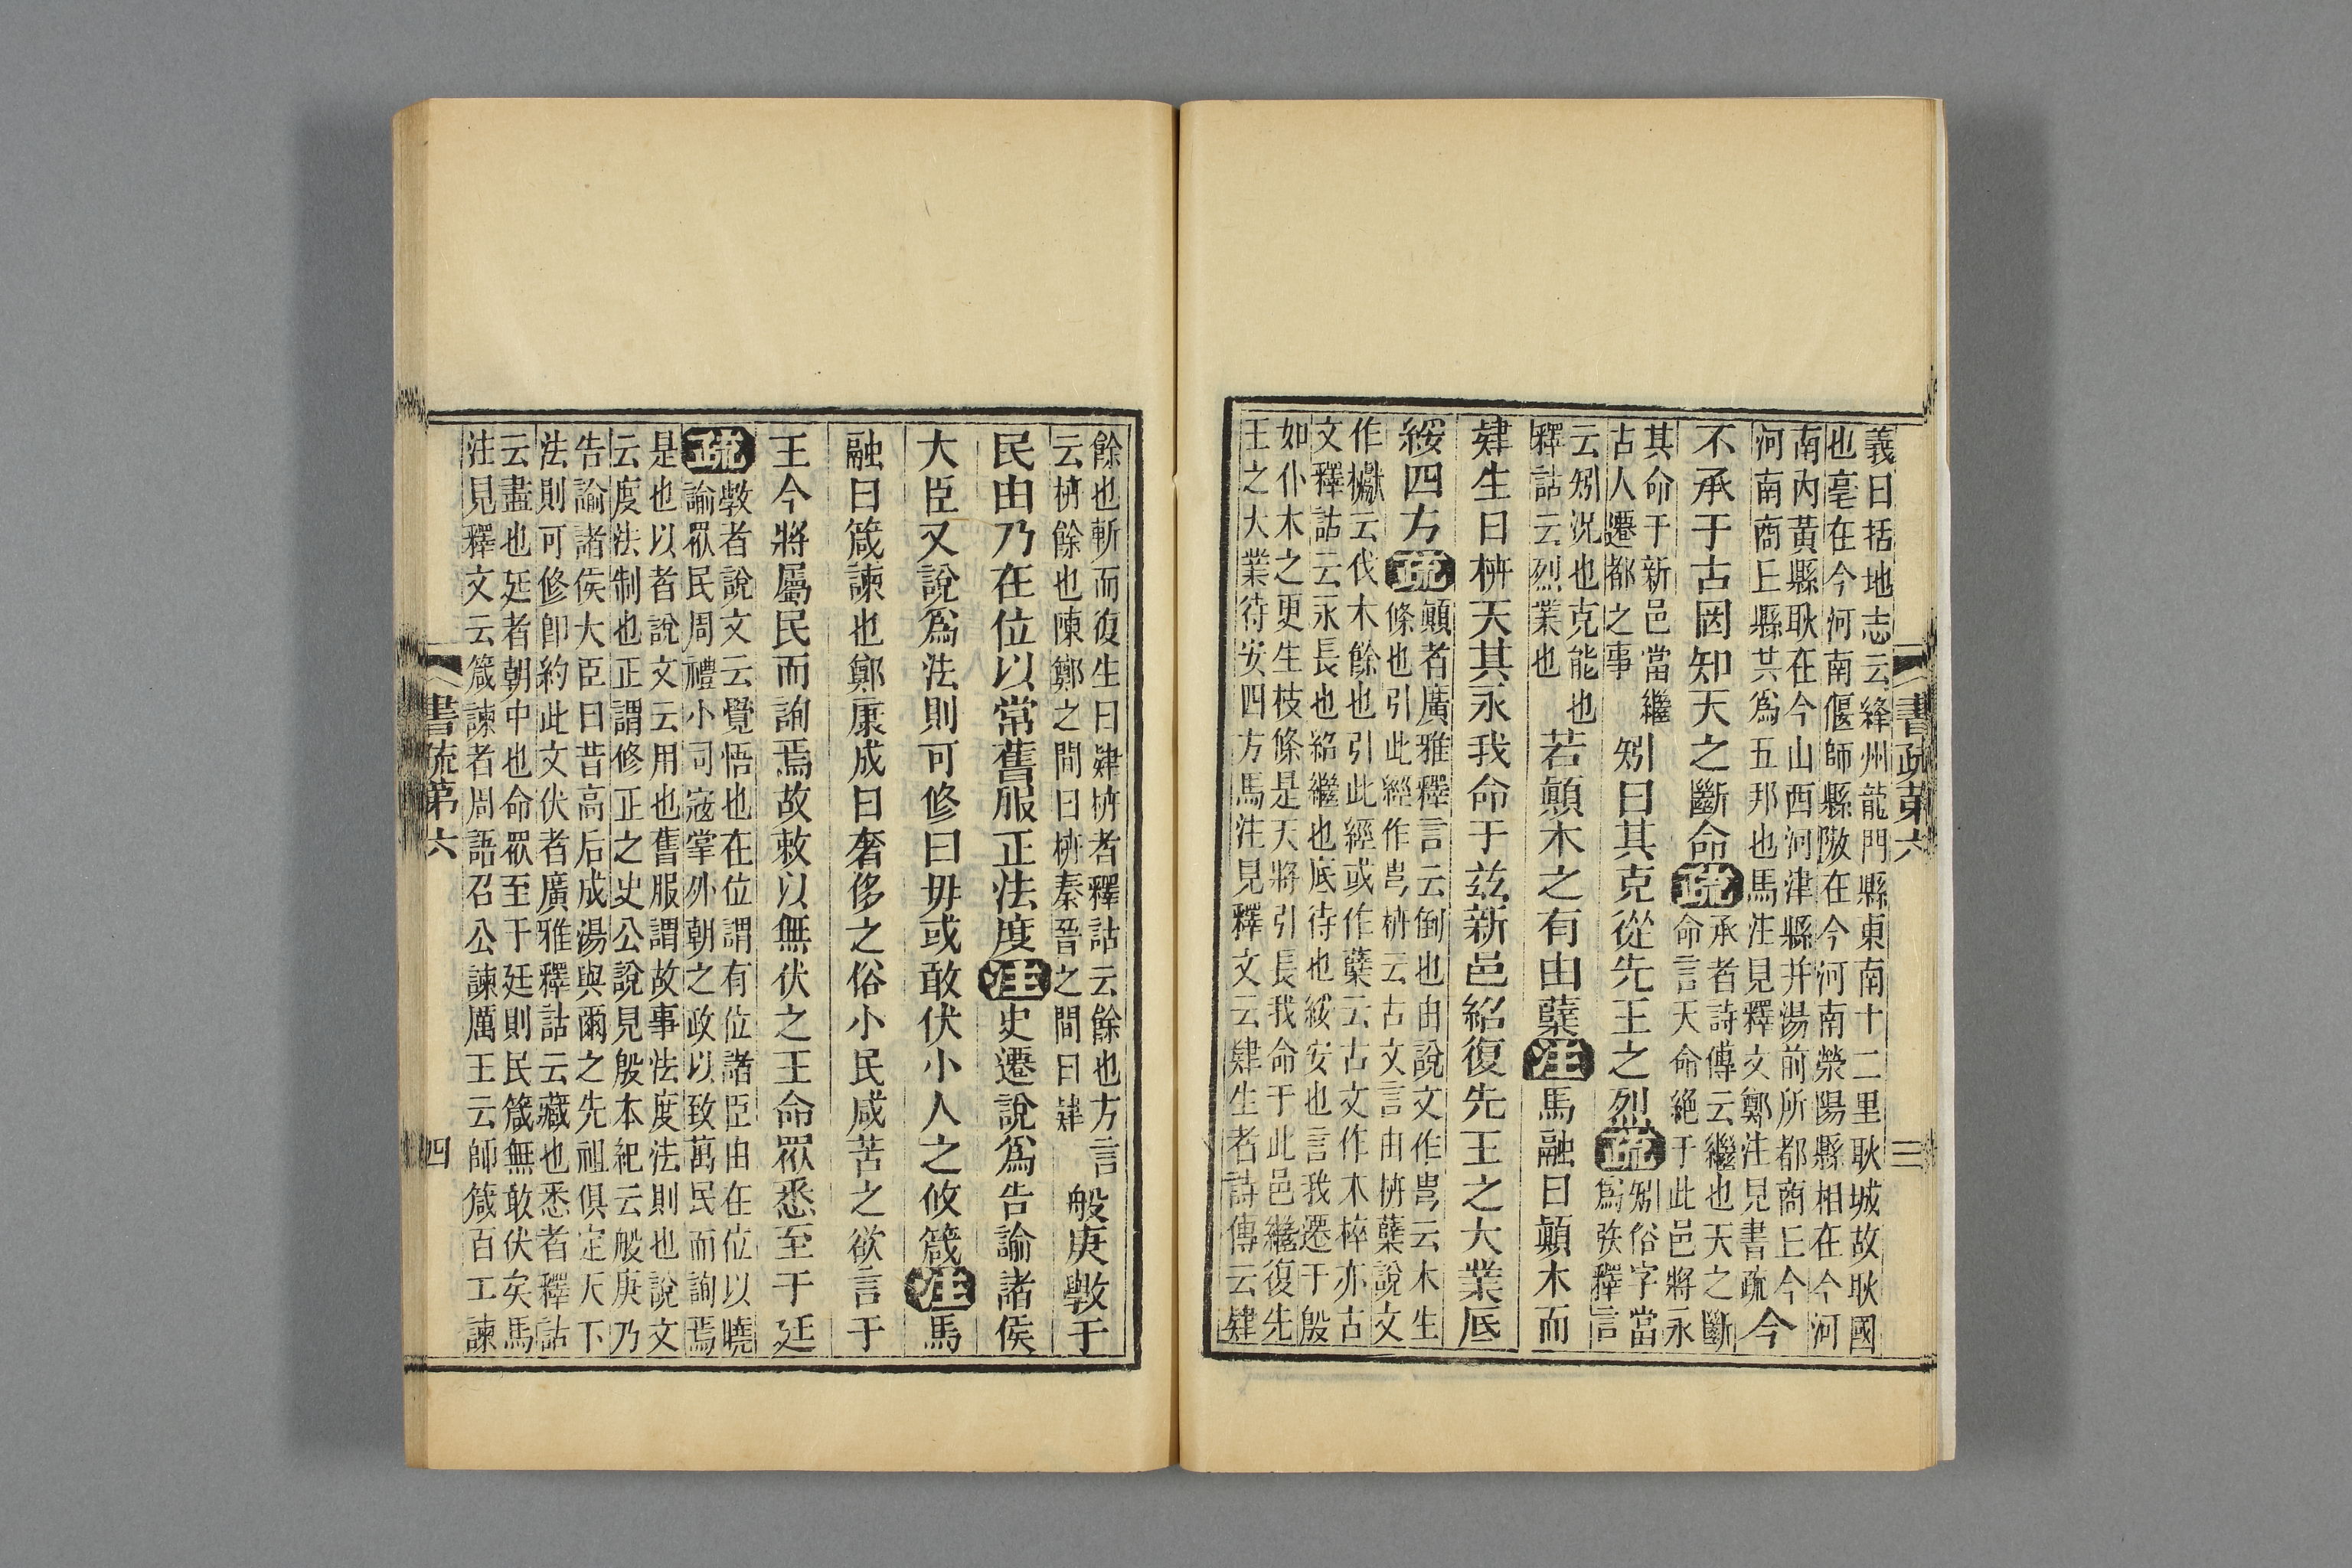 義曰括地志云絳州龍門縣東南十二里耿城故耿國
也亳在今河南偃師縣隞在今河南滎陽縣相在今河
南內黃縣耿在今山西河津縣并湯前所都商丘今
河南商丘縣共爲五邦也馬注見釋文鄭注見書疏
今
不承于古罔知天之斷命疏
承者詩傳云繼也天之斷
命言天命絕于此邑將永
其命于新邑當繼
古人遷都之事
矧曰其克從先王之烈疏
矧俗字當
爲弞釋言
云矧況也克能也
釋詁云烈業也
若顚木之有由櫱注馬融曰顚木而
肄生曰枿天其永我命于茲新邑紹復先王之大業厎
綏四方疏
顚者廣雅釋言云倒也由說文作甹云木生
條也引此經作甹枿云古文言由枿櫱說文
作櫱云伐木餘也引此經或作蘖云古文作木㮆亦古
文釋詁云永長也紹繼也底待也綏安也言我遷于殷
如仆木之更生枝條是天將引長我命于此邑繼復先
王之大業待安四方馬注見釋文云肄生者詩傳云肄
書疏第六
三
餘也斬而復生曰肄枿者釋詁云餘也方言
云枿餘也陳鄭之間曰枿秦晉之間曰肄
般庚斆于
民由乃在位以常舊服正法度注史遷說爲告諭諸侯
大臣又說爲法則可修曰毋或敢伏小人之攸箴注馬
融曰箴諫也鄭康成曰奢侈之俗小民咸苦之欲言于
王今將屬民而詢焉故敕以無伏之王命眾悉至于廷
疏
斆者說文云覺悟也在位謂有位諸臣由在位以曉
諭眾民周禮小司寇掌外朝之政以致萬民而詢焉
是也以者說文云用也舊服謂故事法度法則也說文
云度法制也正謂修正之史公說見殷本紀云般庚乃
告諭諸侯大臣曰昔高后成湯與爾之先祖俱定天下
法則可修卽約此文伏者廣雅釋詁云藏也悉者釋詁
云盡也廷者朝中也命眾至于廷則民箴無敢伏矣馬
注見釋文云箴諫者周語召公諫厲王云師箴百工諫
書疏第六
四